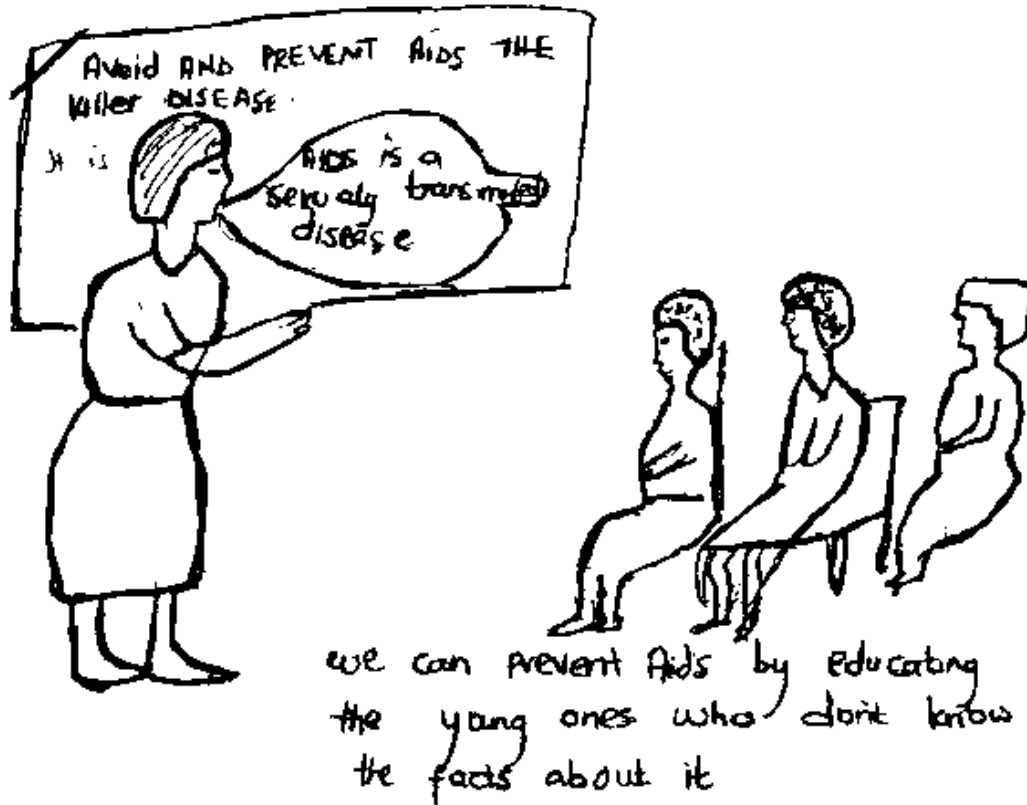 Avoid AND PREVENT AIDS THE
killer DISEASE.
It is
AIDS is a
sexualy transmited
disease
we can prevent Aids by educating
the young ones who don't know
the facts about it